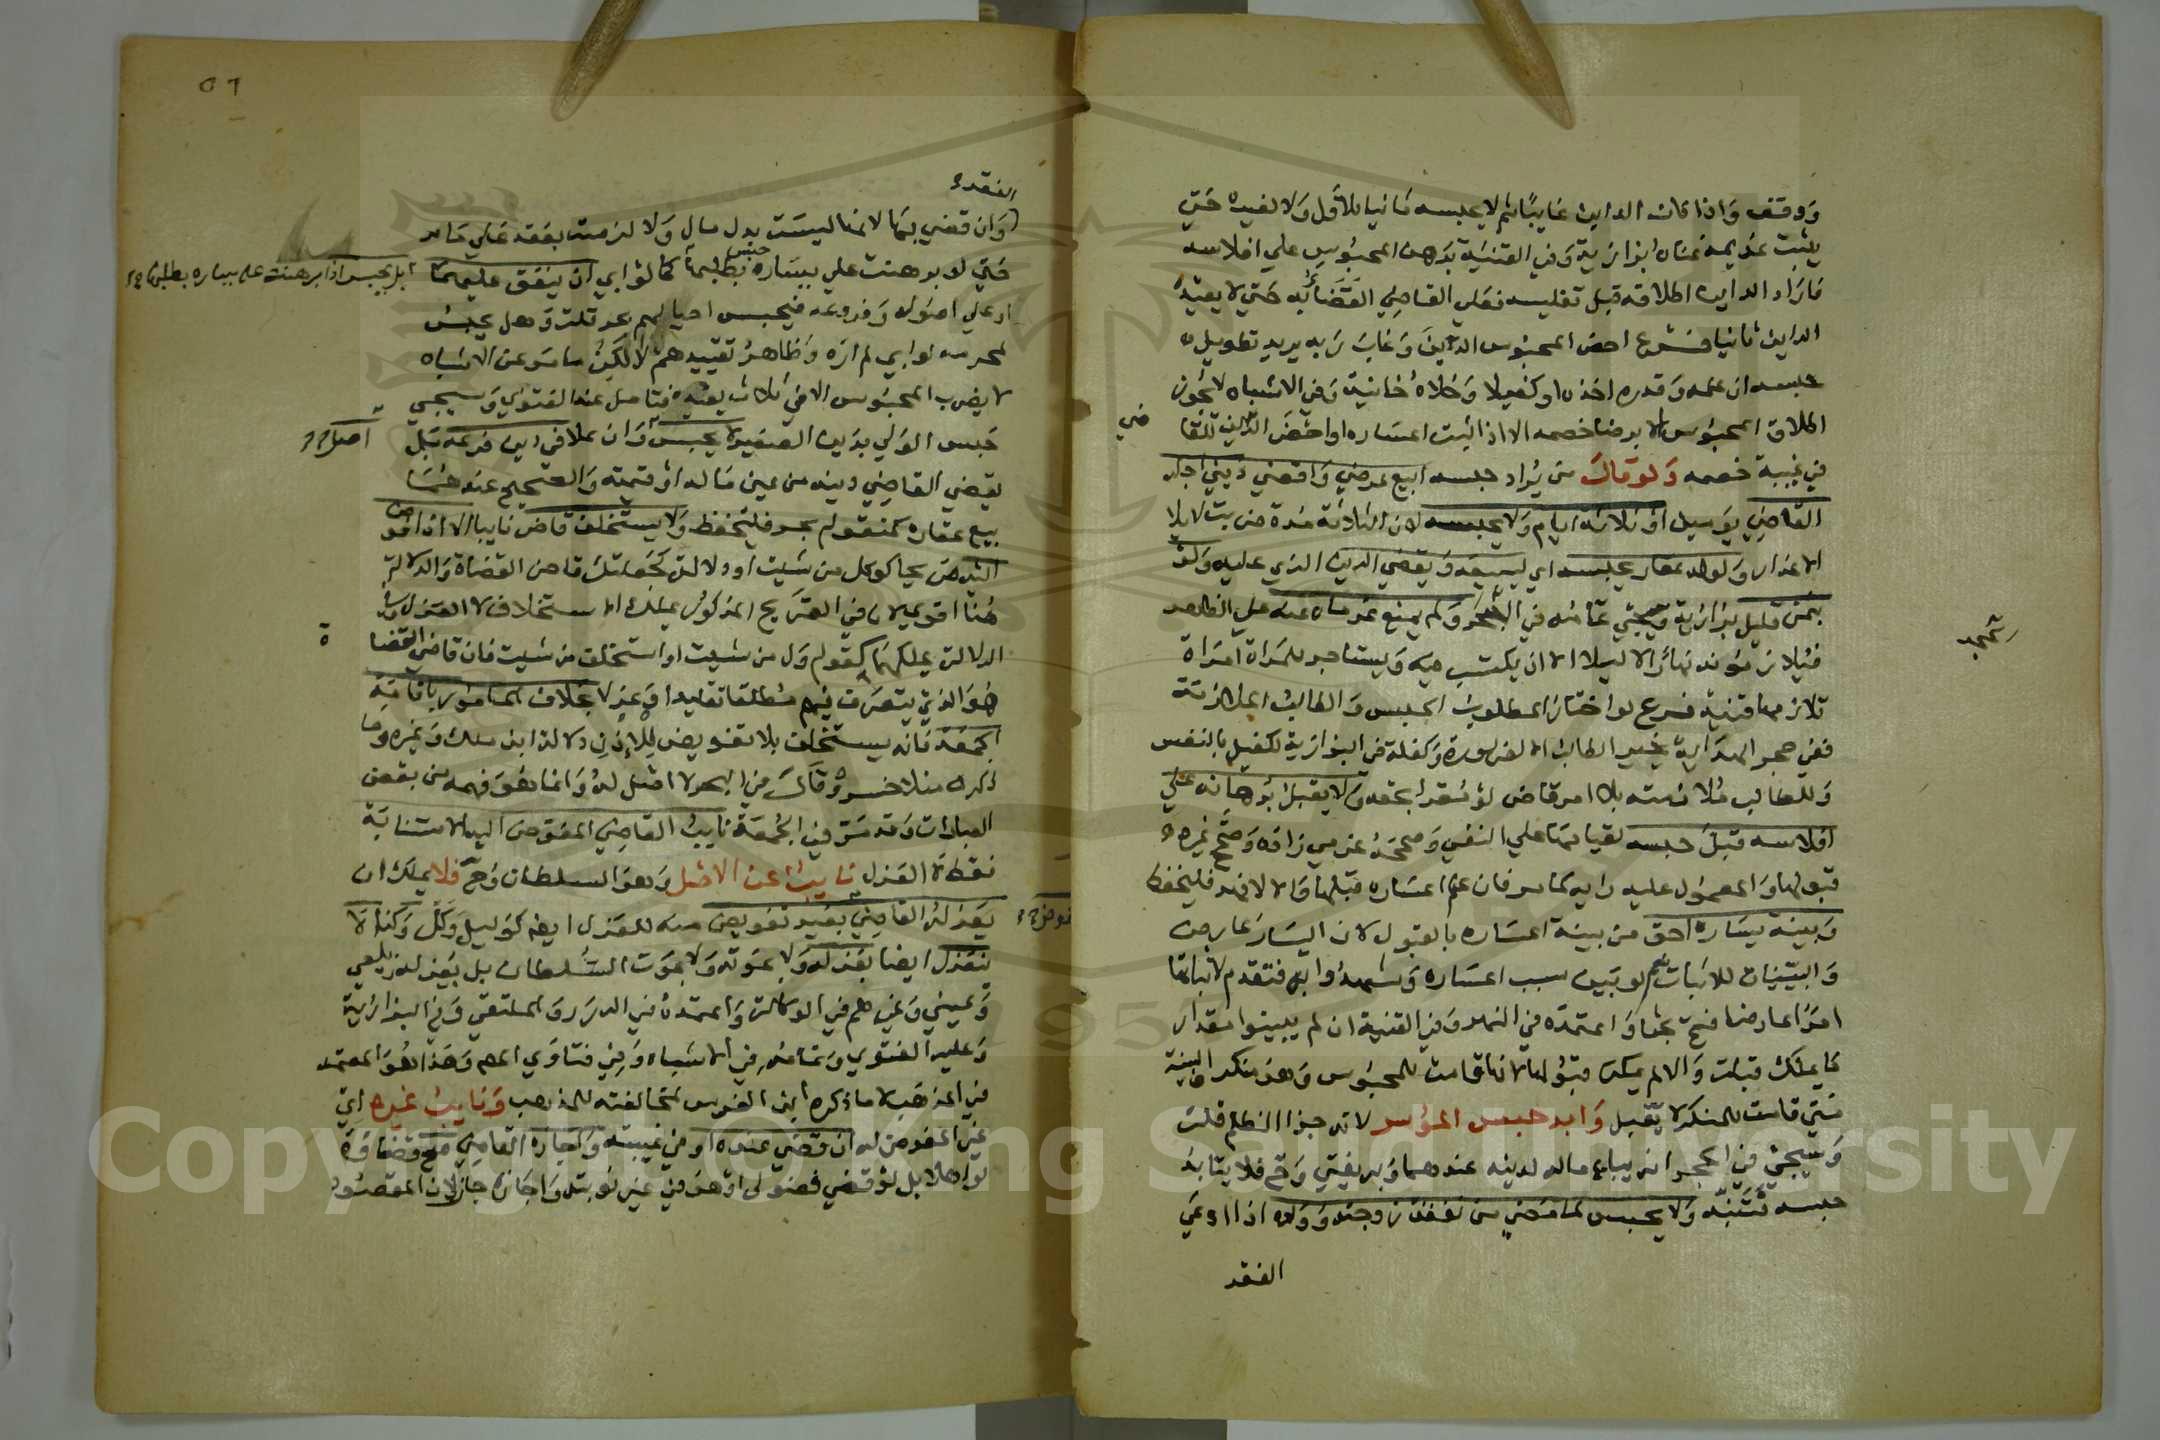 ووقف واذا كان الداين غايبا ثم لا يحبسه ثانيا للاول ولا لغيره حتى
يثبت غريمه غناه بزازية وفي القنية برهن المحبوس علي افلاسه
فاراد الداين اطلاقه قبل تفليسه فعلي القاضي القضا به حتي لا يعيده
الداين ثانيا فرع احضر المحبوس الدين وغاب ربه يريد تطويل
حبسه ان علمه وقدره اخذه او كفيلا وخلاه خانية وفي الاشباه لا يجوز
اطلاق المحبوس الا برضا خصمه الا اذا اثبت اعساره او احضر الدين للقا
ضي
في غيبة خصمه ولو قال من يراد حبسه ابيع عرضي واقضي ديني اجله
القاضي يومين او ثلاثة ايام ولا يحبسه لان الثلاثة مدة ضربت لابلا
الاعذار ولو له عقار يحبسه اي ليبيعه ويقضي الدين الذي عليه ولو
بثمن قليل بزازية وسيجي تمامه في الحجر ولم يمنع غرماه عنه علي الظاهر
فيلازمونه نهارا لا ليلا الا ان يكتسب فيه ويستاجر للمراة امراة
تلازمها قنية فرع لو اختار المطلوب الحبس والطالب الملازمة
ففي حجر الهداية يخير الطالب الا لضرورة وكفله في البزازية لكفيل بالنفس
وللطالب ملازمته بلا امر قاض لو مقرا بحقه ولا يقبل برهانه علي
افلاسه قبل حبسه لقيامها علي النفي وصححه عزمي زاده وصحح غيره
قبولها والمعمول عليه رايه كما مر فان علم اعساره قبلها والا لا نهر فليحفظ
وبينة يساره احق من بينة اعساره بالقبول لان اليسار عارض
والبينات للاثبات نعم لو بين سبب اعساره وشهدوا به فتقدم لاثباتها
امرا عارضا فتح بحثا واعتمده في النهر وفي القنية ان لم يبينوا مقدار
ما يملك قبلت والا لم يمكن قبولها لانها قامت للمحبوس وهو منكر والبينة
متي قامت للمنكر لا تقبل وابد حبس الموسر لانه جزا الظلم قلت
وسيجي في الحجر انه يباع ماله لدينه عندهما وبه يفتي وح فلا يتابد
حبسه فتنبه ولا يحبس لما مضي من نفقة زوجته وولده اذا ادعي
الفقر
٥٦
الفقر
وان قضي بها لانها ليست بدل مال ولا لزمته بعقد علي ما مر
حتي لو برهنت علي يساره بطلبها حبس كما لو ابي ان ينفق عليهما
بل يحبس اذا برهنت علي يساره بطلبها
او علي اصوله وفروعه فيحبس احيا لهم بحر قلت وهل يحبس
لمحرمه لو ابي لم اره وظاهر تقييدهم لا لكن ما مر عن الاشباه
لا يضرب المحبوس الا في ثلاث يفيده فتامل عند الفتوي وسيجي
حبس الولي بدين الصغير لا يحبس وان علا في دين فرعه بل
اصل
يقضي القاضي دينه من عين ماله او قيمته والصحيح عندهما
بيع عقاره كمنقوله بحر فليحفظ ولا يستخلف قاض نايبا الا اذا فوض
اليه صريحا كول من شيت او دلالة كجعلتك قاضي القضاة والدلالة
هنا اقوي لان في الصريح المذكور يملك الاستخلاف لا العزل وفي
الدلالة يملكهما كقوله ول من شيت او استخلف من شيت فان قاضي القضا
ة
هو الذي يتصرف فيهم مطلقا تقليدا وعزلا بخلاف المامور باقامة
الجمعة فانه يستخلف بلا تفويض للاذن دلالة ابن ملك وغيره وما
ذكره منلا خسرو قال في البحر لا اصل له وانما هو فهمه من بعض
العبارات وقد مر في الجمعة نايب القاضي المفوض اليه الاستنابة
فقط لا العزل نايب عن الاصل وهو السلطان وح فلا يملك ان
يعزله القاضي بغير تفويض منه للعزل ايضا كوكيل وكل وكذا لا
فوض
ينعزل ايضا بعزله ولا بموته ولا بموت السلطان بل بعزله زيلعي
وعيني وغيرهم في الوكالة واعتمده في الدرر والملتقي وفي البزازية
وعليه الفتوي وتمامه في الاشباه وفي فتاوي المص وهذا هو المعتمد
في المذهب لا ما ذكره ابن الغرس لمخالفته للمذهب ونايب غيره اي
غير المفوض له ان قضي عنده او في غيبته واجازه القاضي صح قضاؤه
لو اهلا بل لو قضي فضولي او هو في غير نوبته واجازه جاز لان المقصود